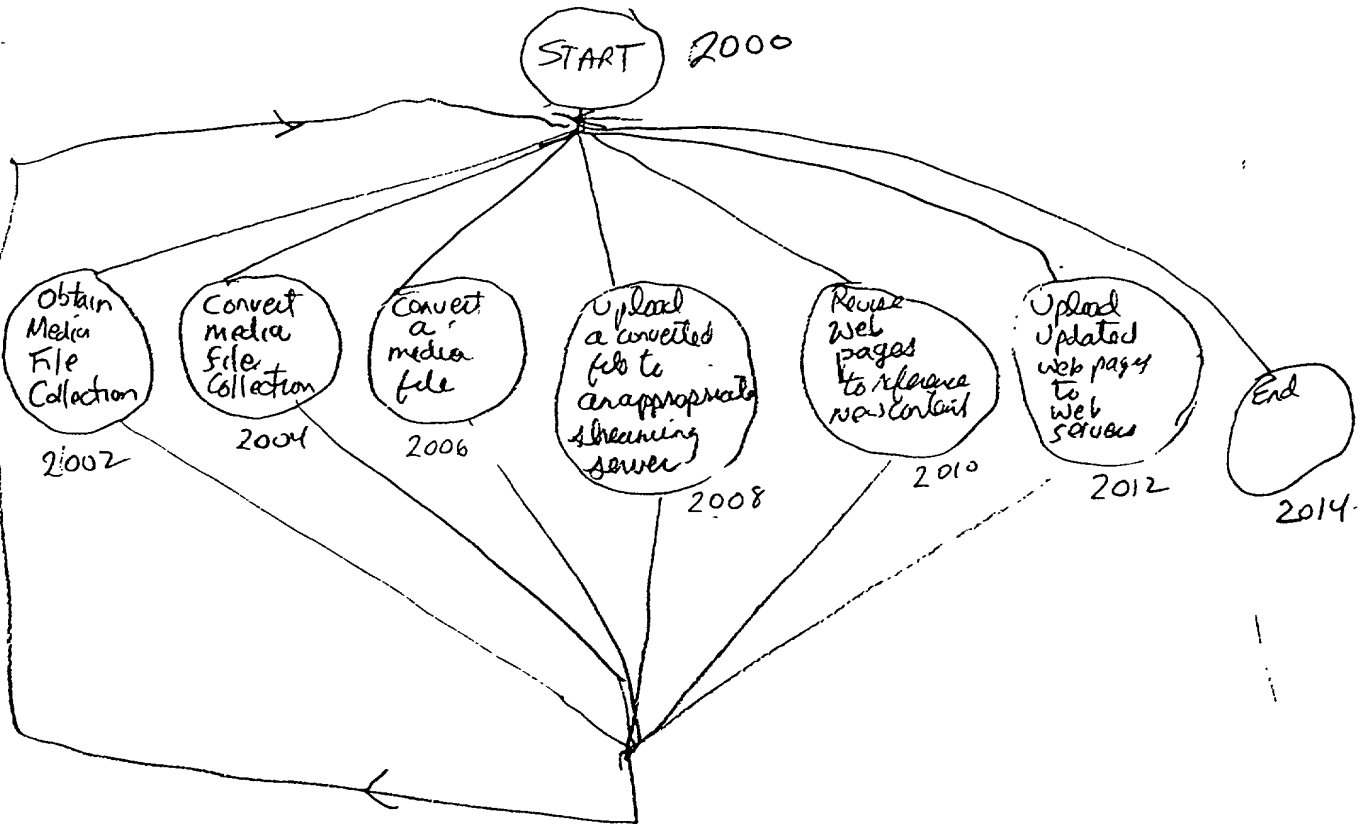 START 2000
Obtain
Media
File
Collection
2002
Convert
media
file
Collection
2004
Convert
a
media
file
2006
Upload
a converted
file to
an appropriate
streaming
server
2008
Revise
Web
pages
to reference
new content
2010
Upload
updated
web pages
to
web
servers
2012
End
2014